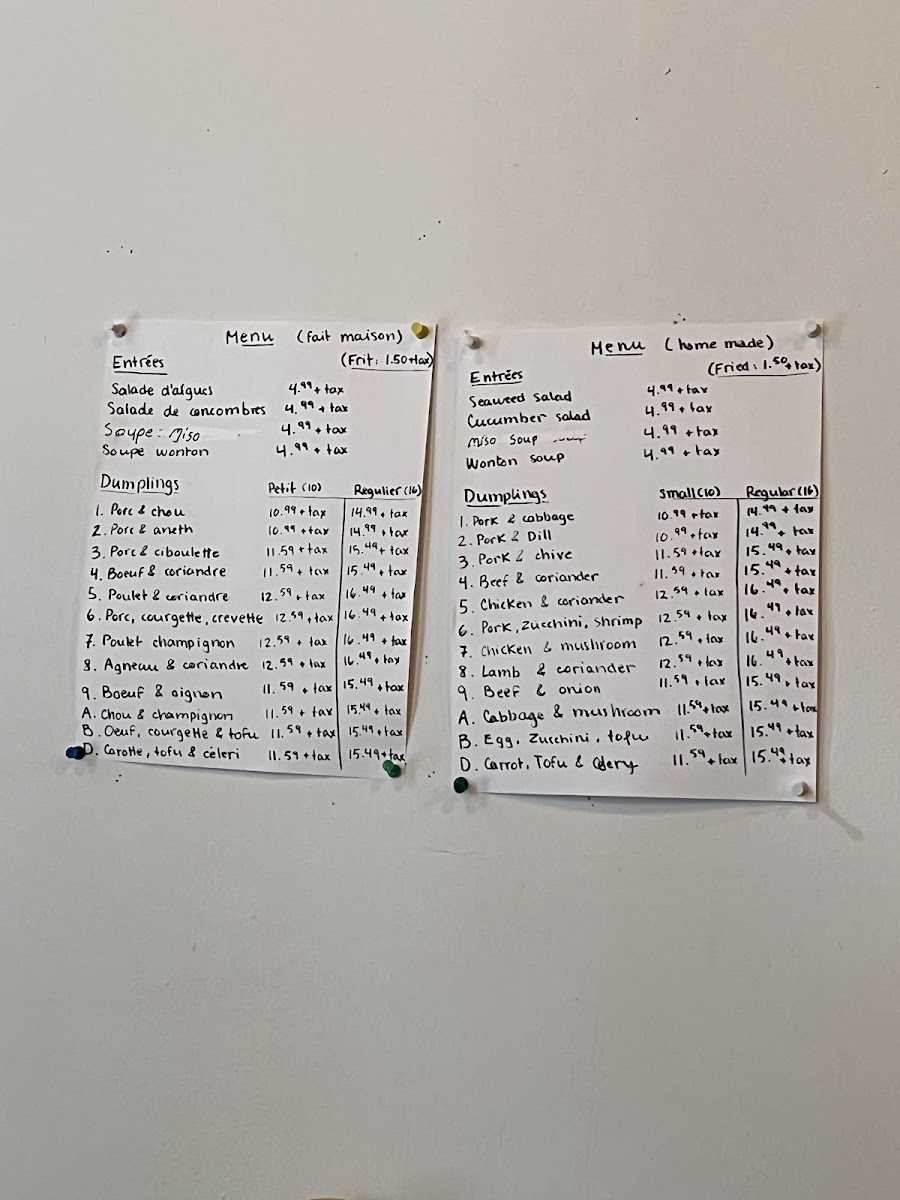 Menu (fait maison)
Entrées (Frit: 1.50+tax)
Salade d'algues 4.99 + tax
Salade de concombres 4.99 + tax
Soupe: Miso 4.99 + tax
Soupe wonton 4.99 + tax
Dumplings Petit (10) Regulier (16)
1. Porc & chou 10.99 + tax 14.99 + tax
2. Porc & aneth 10.99 + tax 14.99 + tax
3. Porc & ciboulette 11.59 + tax 15.49 + tax
4. Boeuf & coriandre 11.59 + tax 15.49 + tax
5. Poulet & coriandre 12.59 + tax 16.49 + tax
6. Porc, courgette, crevette 12.59 + tax 16.49 + tax
7. Poulet champignon 12.59 + tax 16.49 + tax
8. Agneau & coriandre 12.59 + tax 16.49 + tax
9. Boeuf & oignon 11.59 + tax 15.49 + tax
A. Chou & champignon 11.59 + tax 15.49 + tax
B. Oeuf, courgette & tofu 11.59 + tax 15.49 + tax
D. Carotte, tofu & céleri 11.59 + tax 15.49 + tax
Menu (home made)
(Fried: 1.50 + tax)
Entrées
Seaweed Salad 4.99 + tax
Cucumber salad 4.99 + tax
Miso Soup 4.99 + tax
Wonton soup 4.99 + tax
Dumplings Small (10) Regular (16)
1. Pork & cabbage 10.99 + tax 14.99 + tax
2. Pork & Dill 10.99 + tax 14.99 + tax
3. Pork & chive 11.59 + tax 15.49 + tax
4. Beef & coriander 11.59 + tax 15.49 + tax
5. Chicken & coriander 12.59 + tax 16.49 + tax
6. Pork, Zucchini, Shrimp 12.59 + tax 16.49 + tax
7. Chicken & mushroom 12.59 + tax 16.49 + tax
8. Lamb & coriander 12.59 + tax 16.49 + tax
9. Beef & onion 11.59 + tax 15.49 + tax
A. Cabbage & mushroom 11.59 + tax 15.49 + tax
B. Egg, Zucchini, tofu 11.59 + tax 15.49 + tax
D. Carrot, Tofu & Celery 11.59 + tax 15.49 + tax